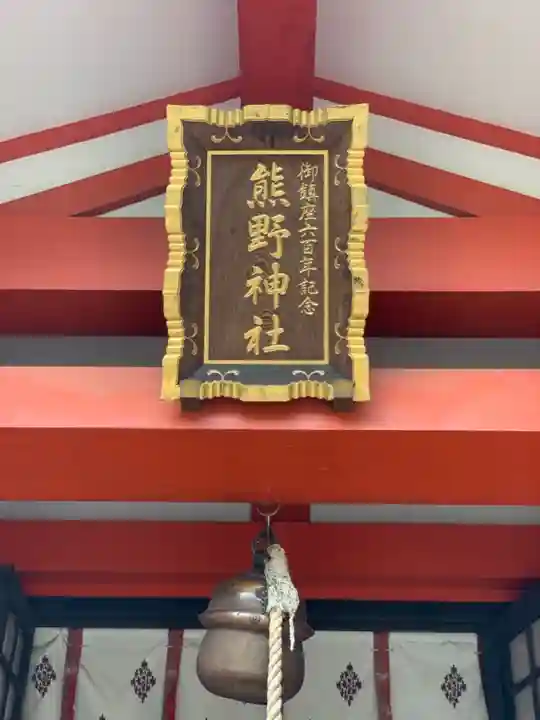 御鎮座六百年記念
熊野神社